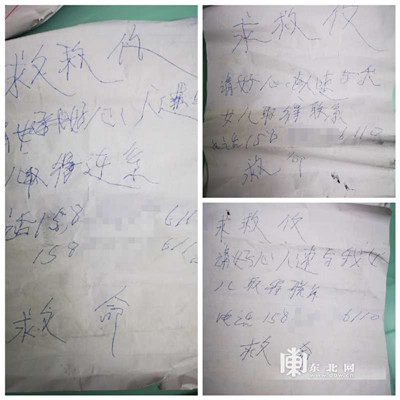 求救伩
好心人速
儿取得连系
话158 611
158 611
救命
求救伩
请好心人速与我
女儿取得联系
电话158 6110
救命
求救伩
请好心人速与我女
儿取得联系
电话158 6110
救命
东北网